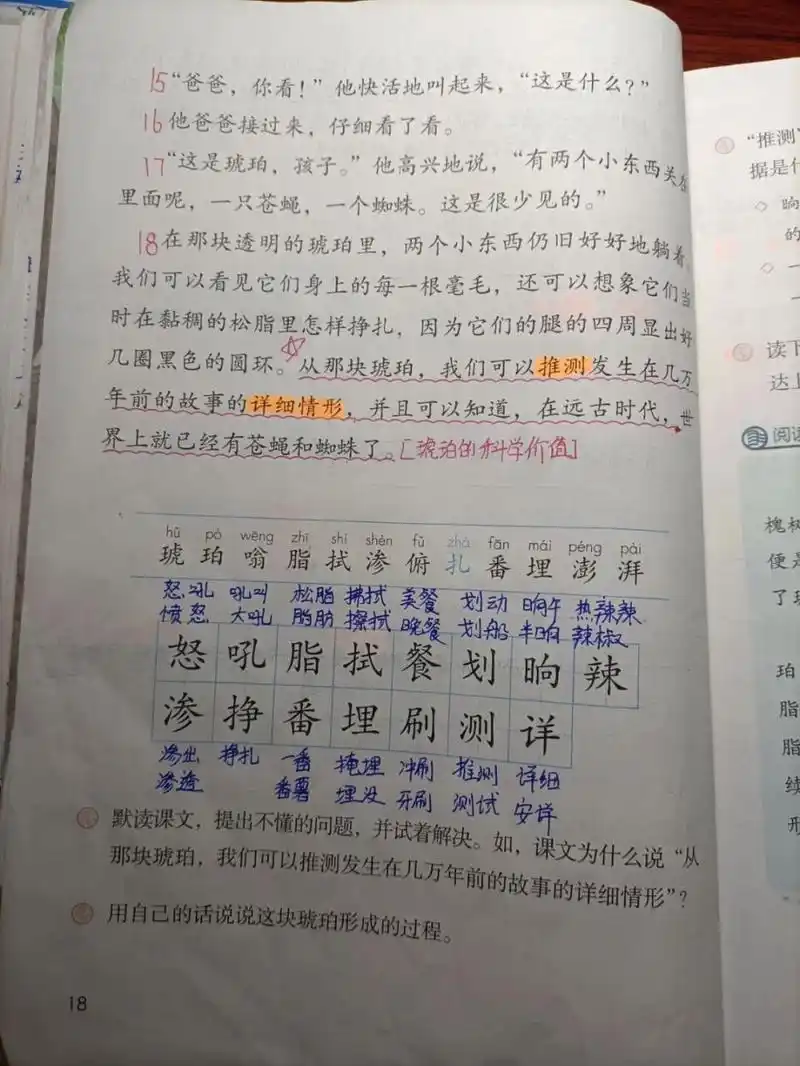 15“爸爸，你看！”他快活地叫起来，“这是什么？”
16他爸爸接过来，仔细看了看。
17“这是琥珀，孩子。”他高兴地说，“有两个小东西关在
里面呢，一只苍蝇，一个蜘蛛。这是很少见的。”
18在那块透明的琥珀里，两个小东西仍旧好好地躺着。
我们可以看见它们身上的每一根毫毛，还可以想象它们当
时在黏稠的松脂里怎样挣扎，因为它们的腿的四周显出好
几圈黑色的圆环。从那块琥珀，我们可以推测发生在几万
年前的故事的详细情形，并且可以知道，在远古时代，世
界上就已经有苍蝇和蜘蛛了。[琥珀的科学价值]
hǔ pò wēng zhī shì shèn fǔ zhá fān mái péng pài
琥 珀 嗡 脂 拭 渗 俯 扎 番 埋 澎 湃
怒吼 吼叫 松脂 拂拭 美餐 划动 晌午 热辣辣
愤怒 大吼 脂肪 擦拭 晚餐 划船 半晌 辣椒
怒 吼 脂 拭 餐 划 晌 辣
渗 挣 番 埋 刷 测 详
渗出 挣扎 一番 掩埋 冲刷 推测 详细
渗透 番薯 埋没 牙刷 测试 安详
默读课文，提出不懂的问题，并试着解决。如，课文为什么说“从
那块琥珀，我们可以推测发生在几万年前的故事的详细情形”？
用自己的话说说这块琥珀形成的过程。
18
“推测”
据是什
晌
的
一
读下
达上
阅读
槐树
便是
了
珀
脂
脂
续
形